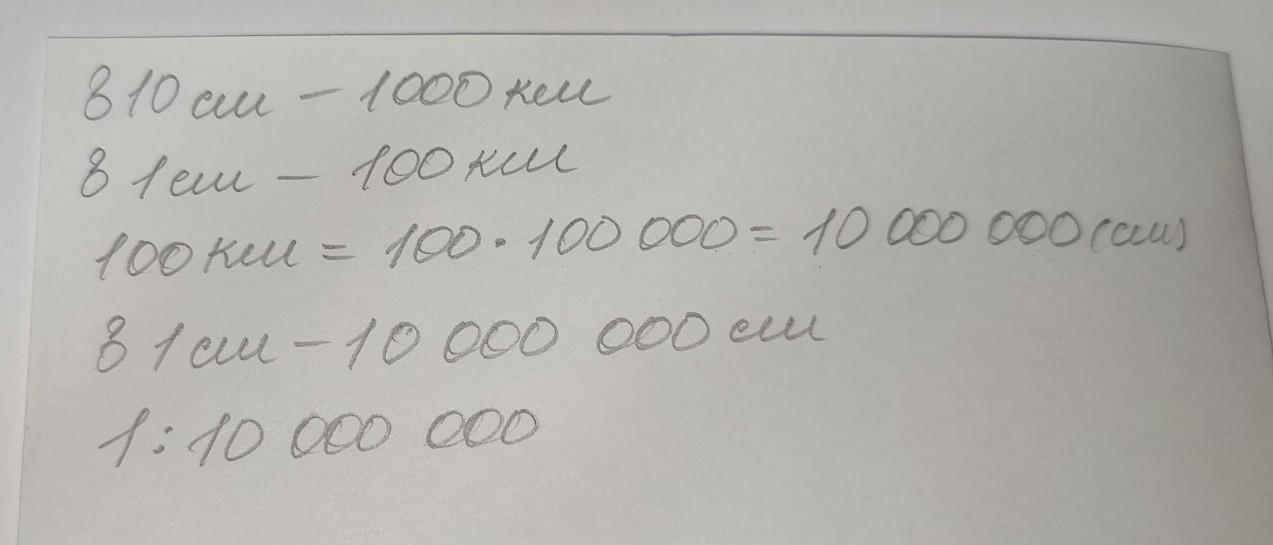 в 10 см – 1000 км
в 1 см – 100 км
100 км = 100 · 100 000 = 10 000 000 (см)
в 1 см – 10 000 000 см
1 : 10 000 000